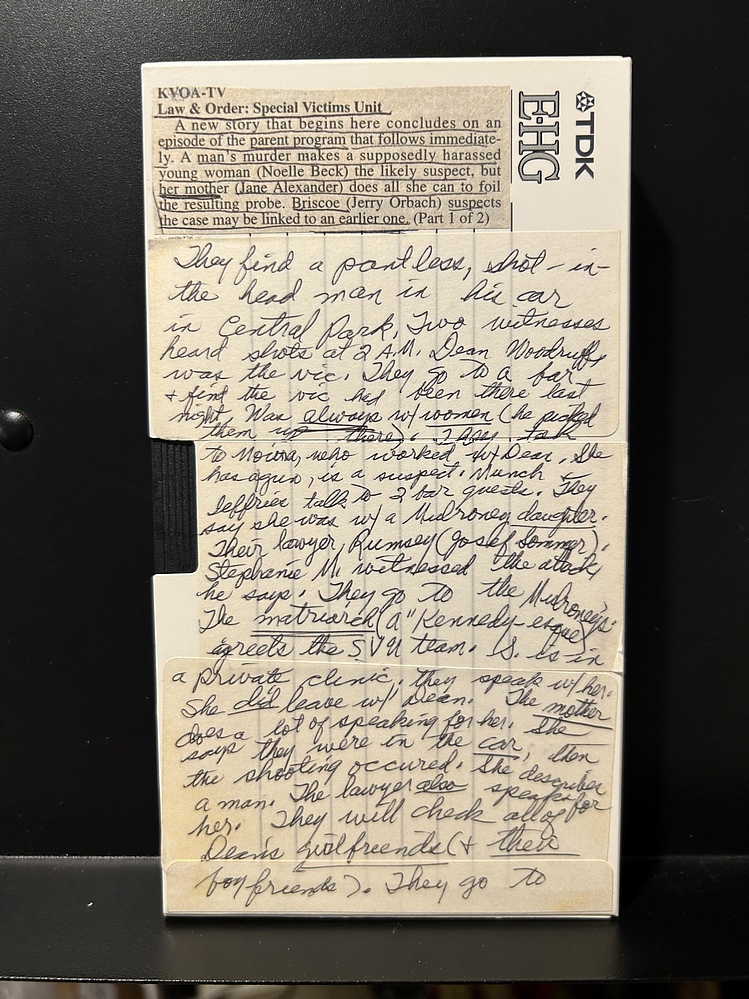 KVOA-TV
Law & Order: Special Victims Unit
A new story that begins here concludes on an
episode of the parent program that follows immediate-
ly. A man's murder makes a supposedly harassed
young woman (Noelle Beck) the likely suspect, but
her mother (Jane Alexander) does all she can to foil
the resulting probe. Briscoe (Jerry Orbach) suspects
the case may be linked to an earlier one. (Part 1 of 2)
TDK
E-HG
They find a pantless, shot-in-
the head man in his car
in Central Park. Two witnesses
heard shots at 2 A.M. Dean Woodruff,
was the vic. They go to a bar
+ find the vic had been there last
night. Was always w/ women (he picked
them up there). They talk
to Moira, who worked w/ Dean. She
has a gun, is a suspect. Munch +
Jeffries talk to 2 bar guests. They
say she was w/ a Mulroney daughter.
Their lawyer Rumsey (Josef Sommer).
Stephanie M. witnessed the attack,
he says. They go to the Mulroney's.
The matriarch (a "Kennedy esque)
agreets the SVU team. S. is in
a private clinic. they speak w/ her.
She did leave w/ Dean. The mother
does a lot of speaking for her. She
says they were in the car, then
the shooting occured. She describes
a man. The lawyer also speaks for
her. They will check all of
Dean's girlfriends (+ their
boyfriends). They go to